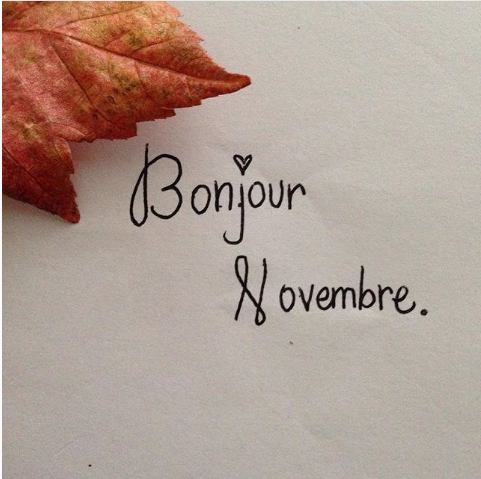 Bonjour
Novembre.